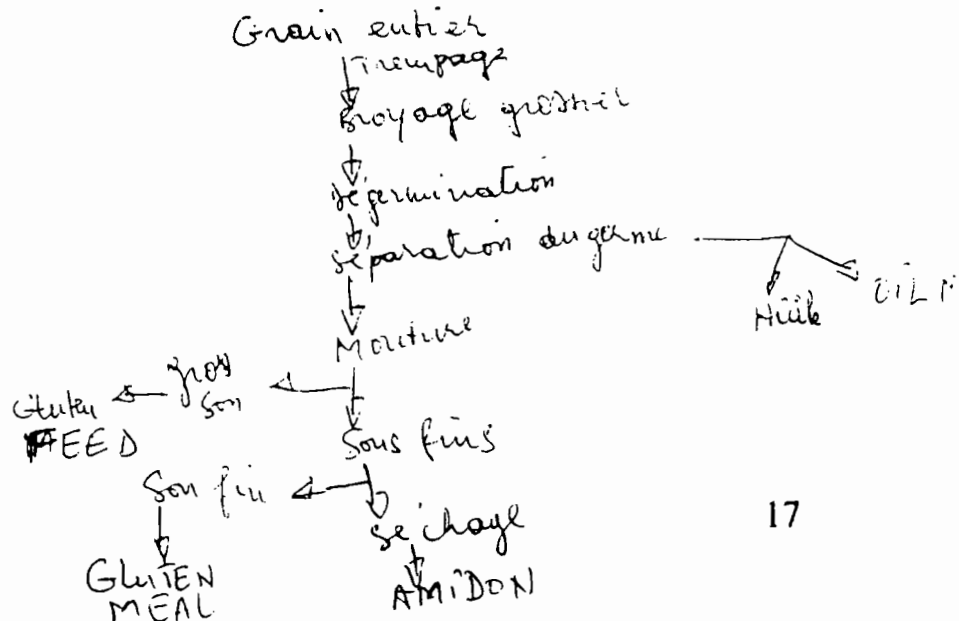 Grain entier
Trempage
Broyage grossier
Dégermination
Séparation du germe
Huile
Mouture
gros
son
Gluten
FEED
Sons fins
Son fin
Séchage
17
GLUTEN
MEAL
AMIDON